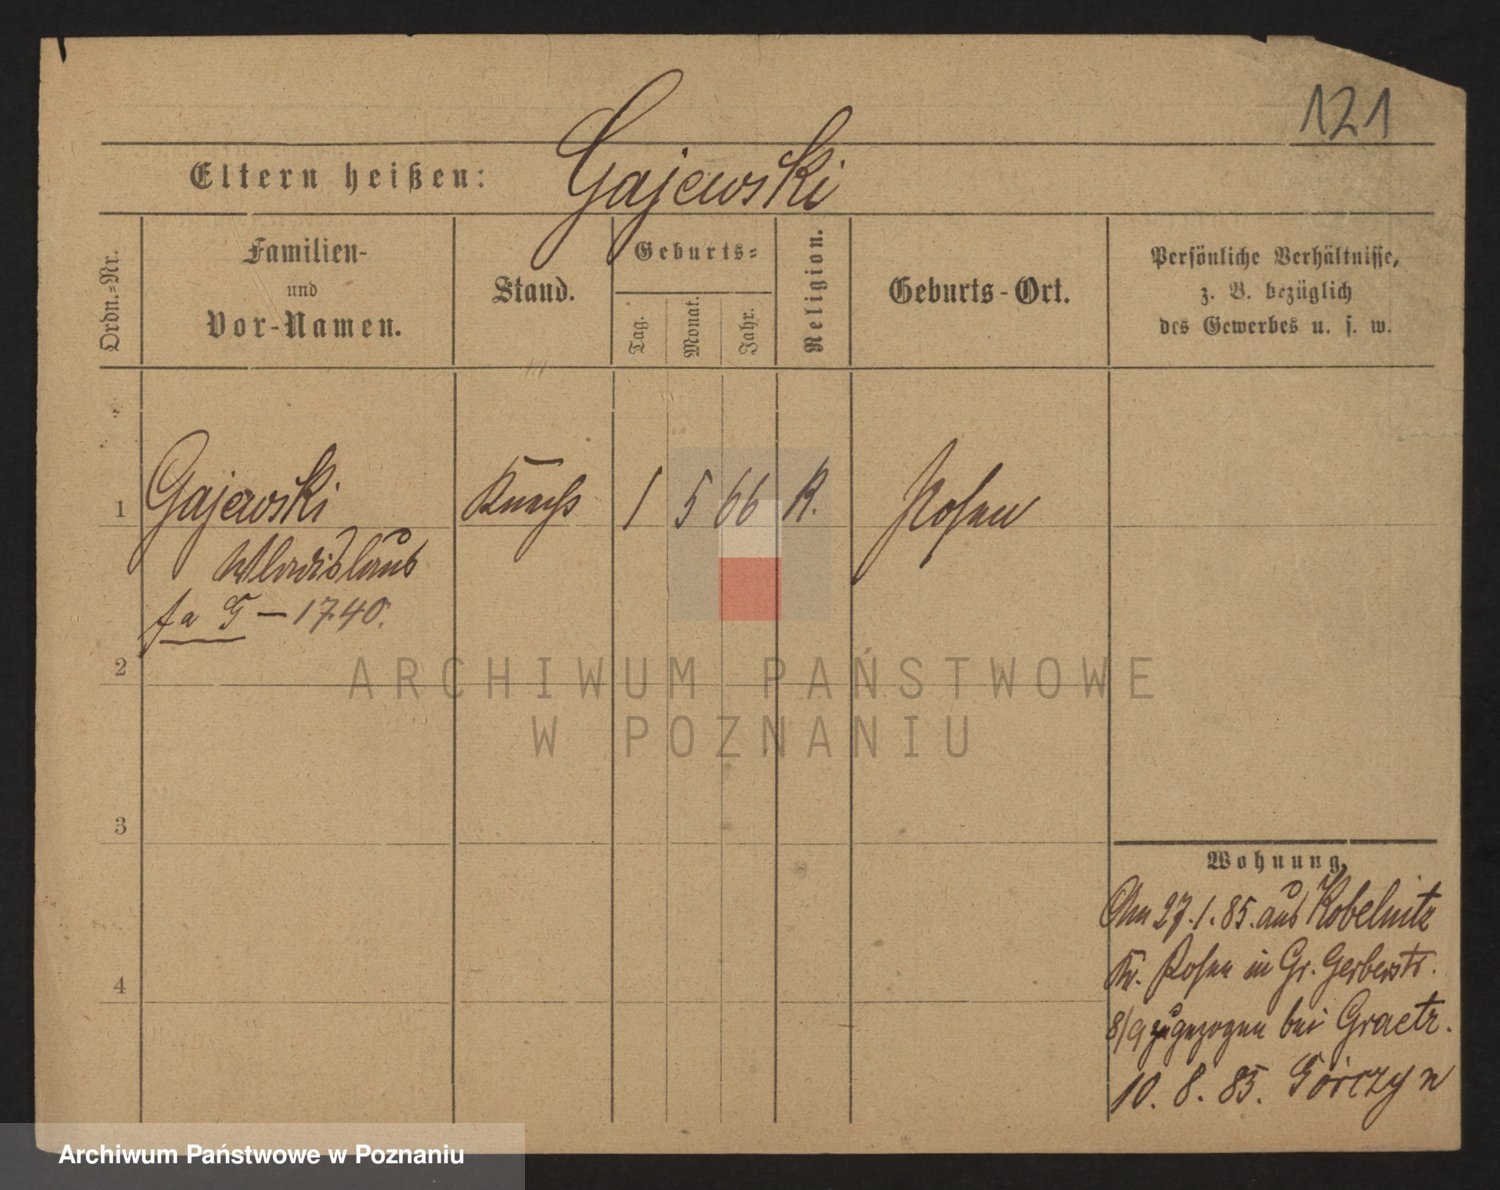 121
Eltern heißen: Gajewski
Ordn.-Nr.
Familien-
und
Vor-Namen.
Stand.
Geburts-
Tag.
Monat.
Jahr.
Religion.
Geburts-Ort.
Persönliche Verhältnisse,
z. B. bezüglich
des Gewerbes u. s. w.
1 Gajewski Knecht 1 5 66 K. Posen
Wladislaus
fa G — 1740.
2
ARCHIWUM PAŃSTWOWE
W POZNANIU
3
Wohnung.
Am 27.1.85. aus Kobelnitz
Kr. Posen in Gr. Gerberstr.
4
8/9 zugezogen bei Graetz.
10. 8. 85. Górczyn
Archiwum Państwowe w Poznaniu